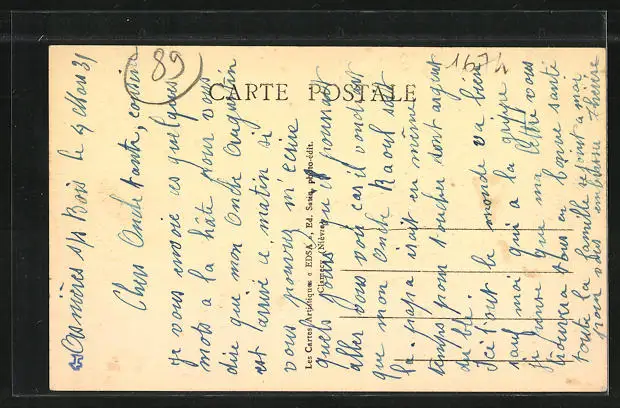 89
1674
CARTE POSTALE
Les Cartes Artistiques « EDSA », Ed. Saus, photo-édit.
Clamecy (Nièvre)
Asnières s/s Bois le 9 Mars 31
Chers Oncle tante, cousine
Je vous envoie ces quelques
mots a la hâte pour vous
dire que mon Oncle Augustin
est arrivé ce matin si
vous pouvez m'écrire
quels jours qu'il pourrait
aller vous voir car il voudrait
que mon Oncle Raoul soit
la. papa irait en même
temps pour toucher son argent
du blé.
Ici tout le monde va bien
sauf moi qui a la grippe
Je pense que ma lettre vous
trouvera tous en bonne santé
toute la famille se joint a moi
pour vous embrasser